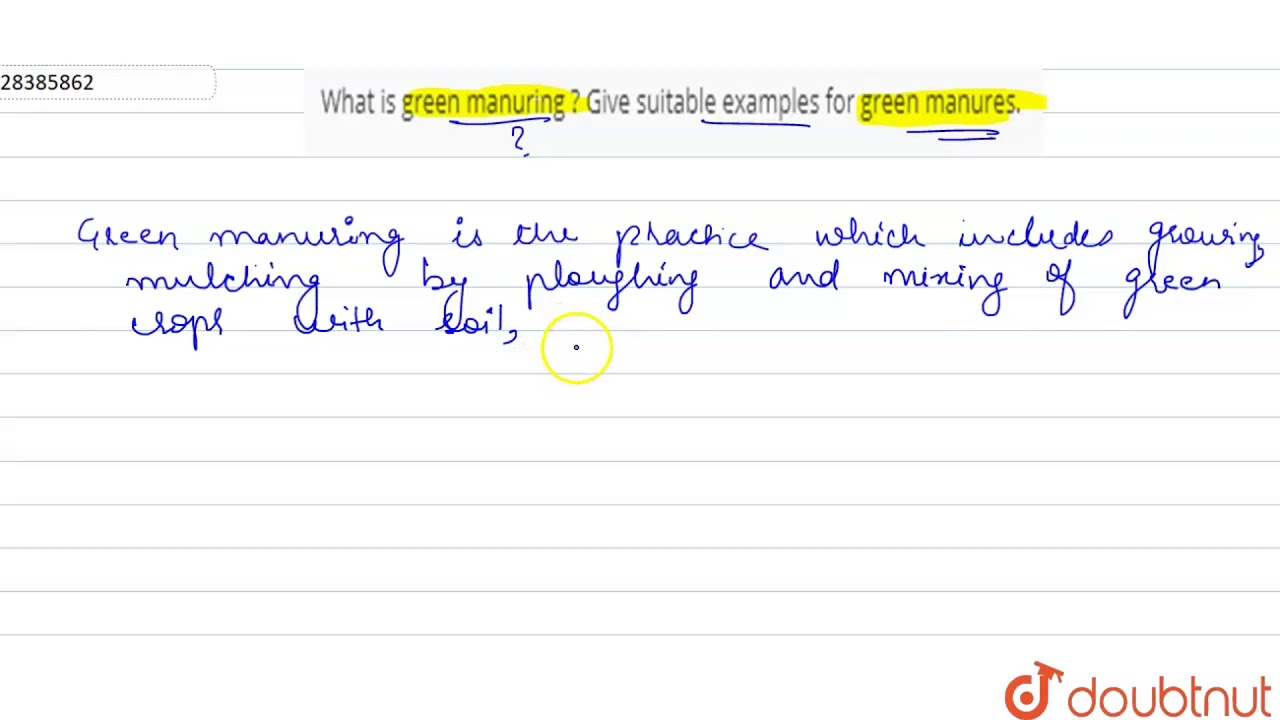 28385862
What is green manuring ? Give suitable examples for green manures.
?
Green manuring is the practice which includes growing,
mulching by ploughing and mixing of green
crops with soil,
doubtnut